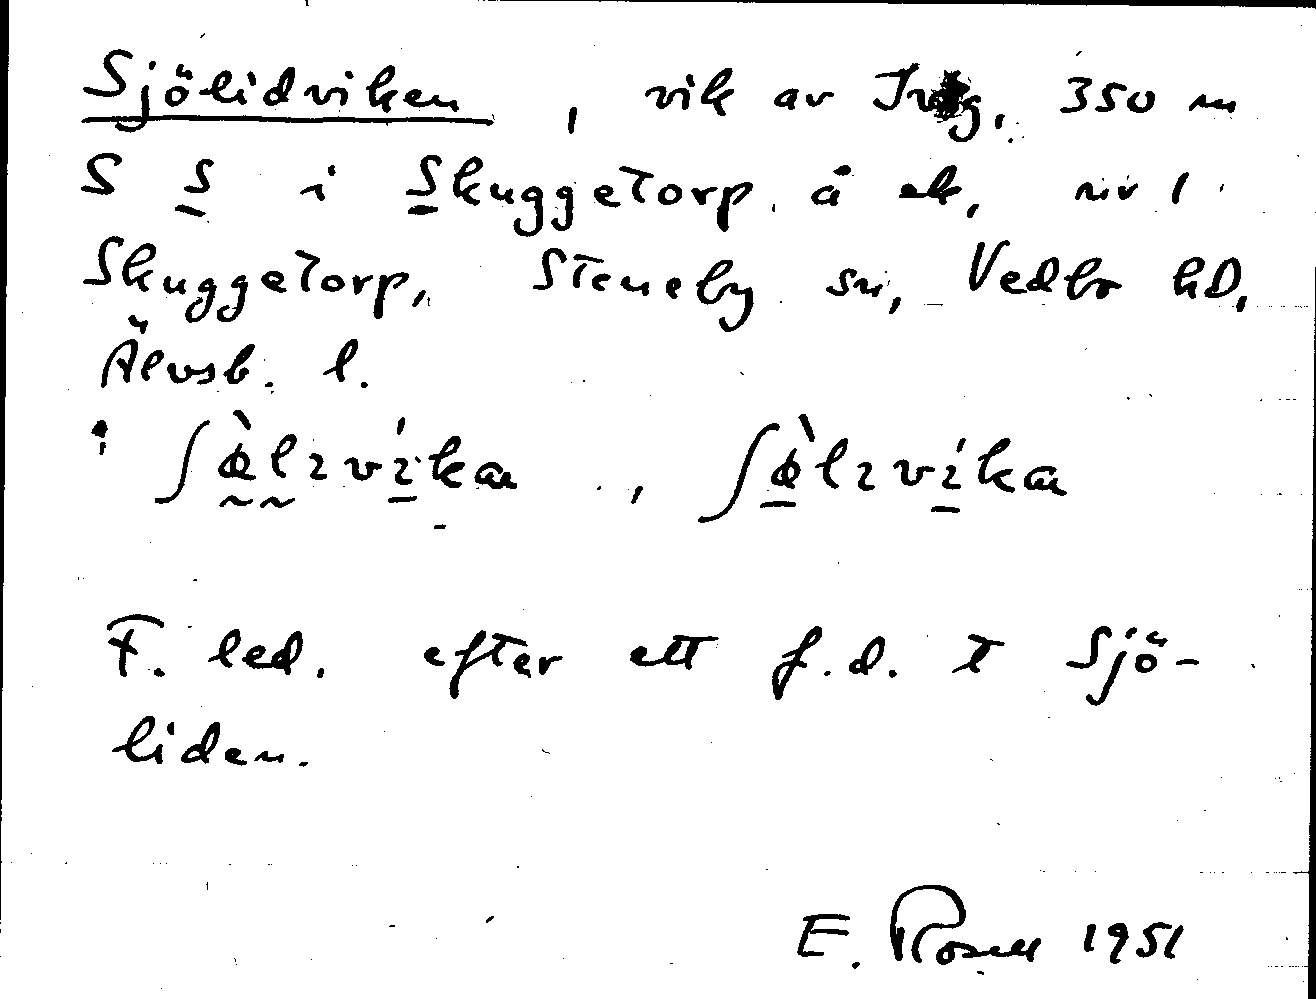 Sjölidviken, vik av Ivåg, 350 m
S S i Skuggetorp å ek, niv 1
Skuggetorp, Steneby sn, Vedbo hd,
Älvsb. l.
ʃø̀lıvı́ka, ʃø̀lıvı́ka
F. led. efter ett f.d. t Sjö-
liden.
E. Rosell 1951